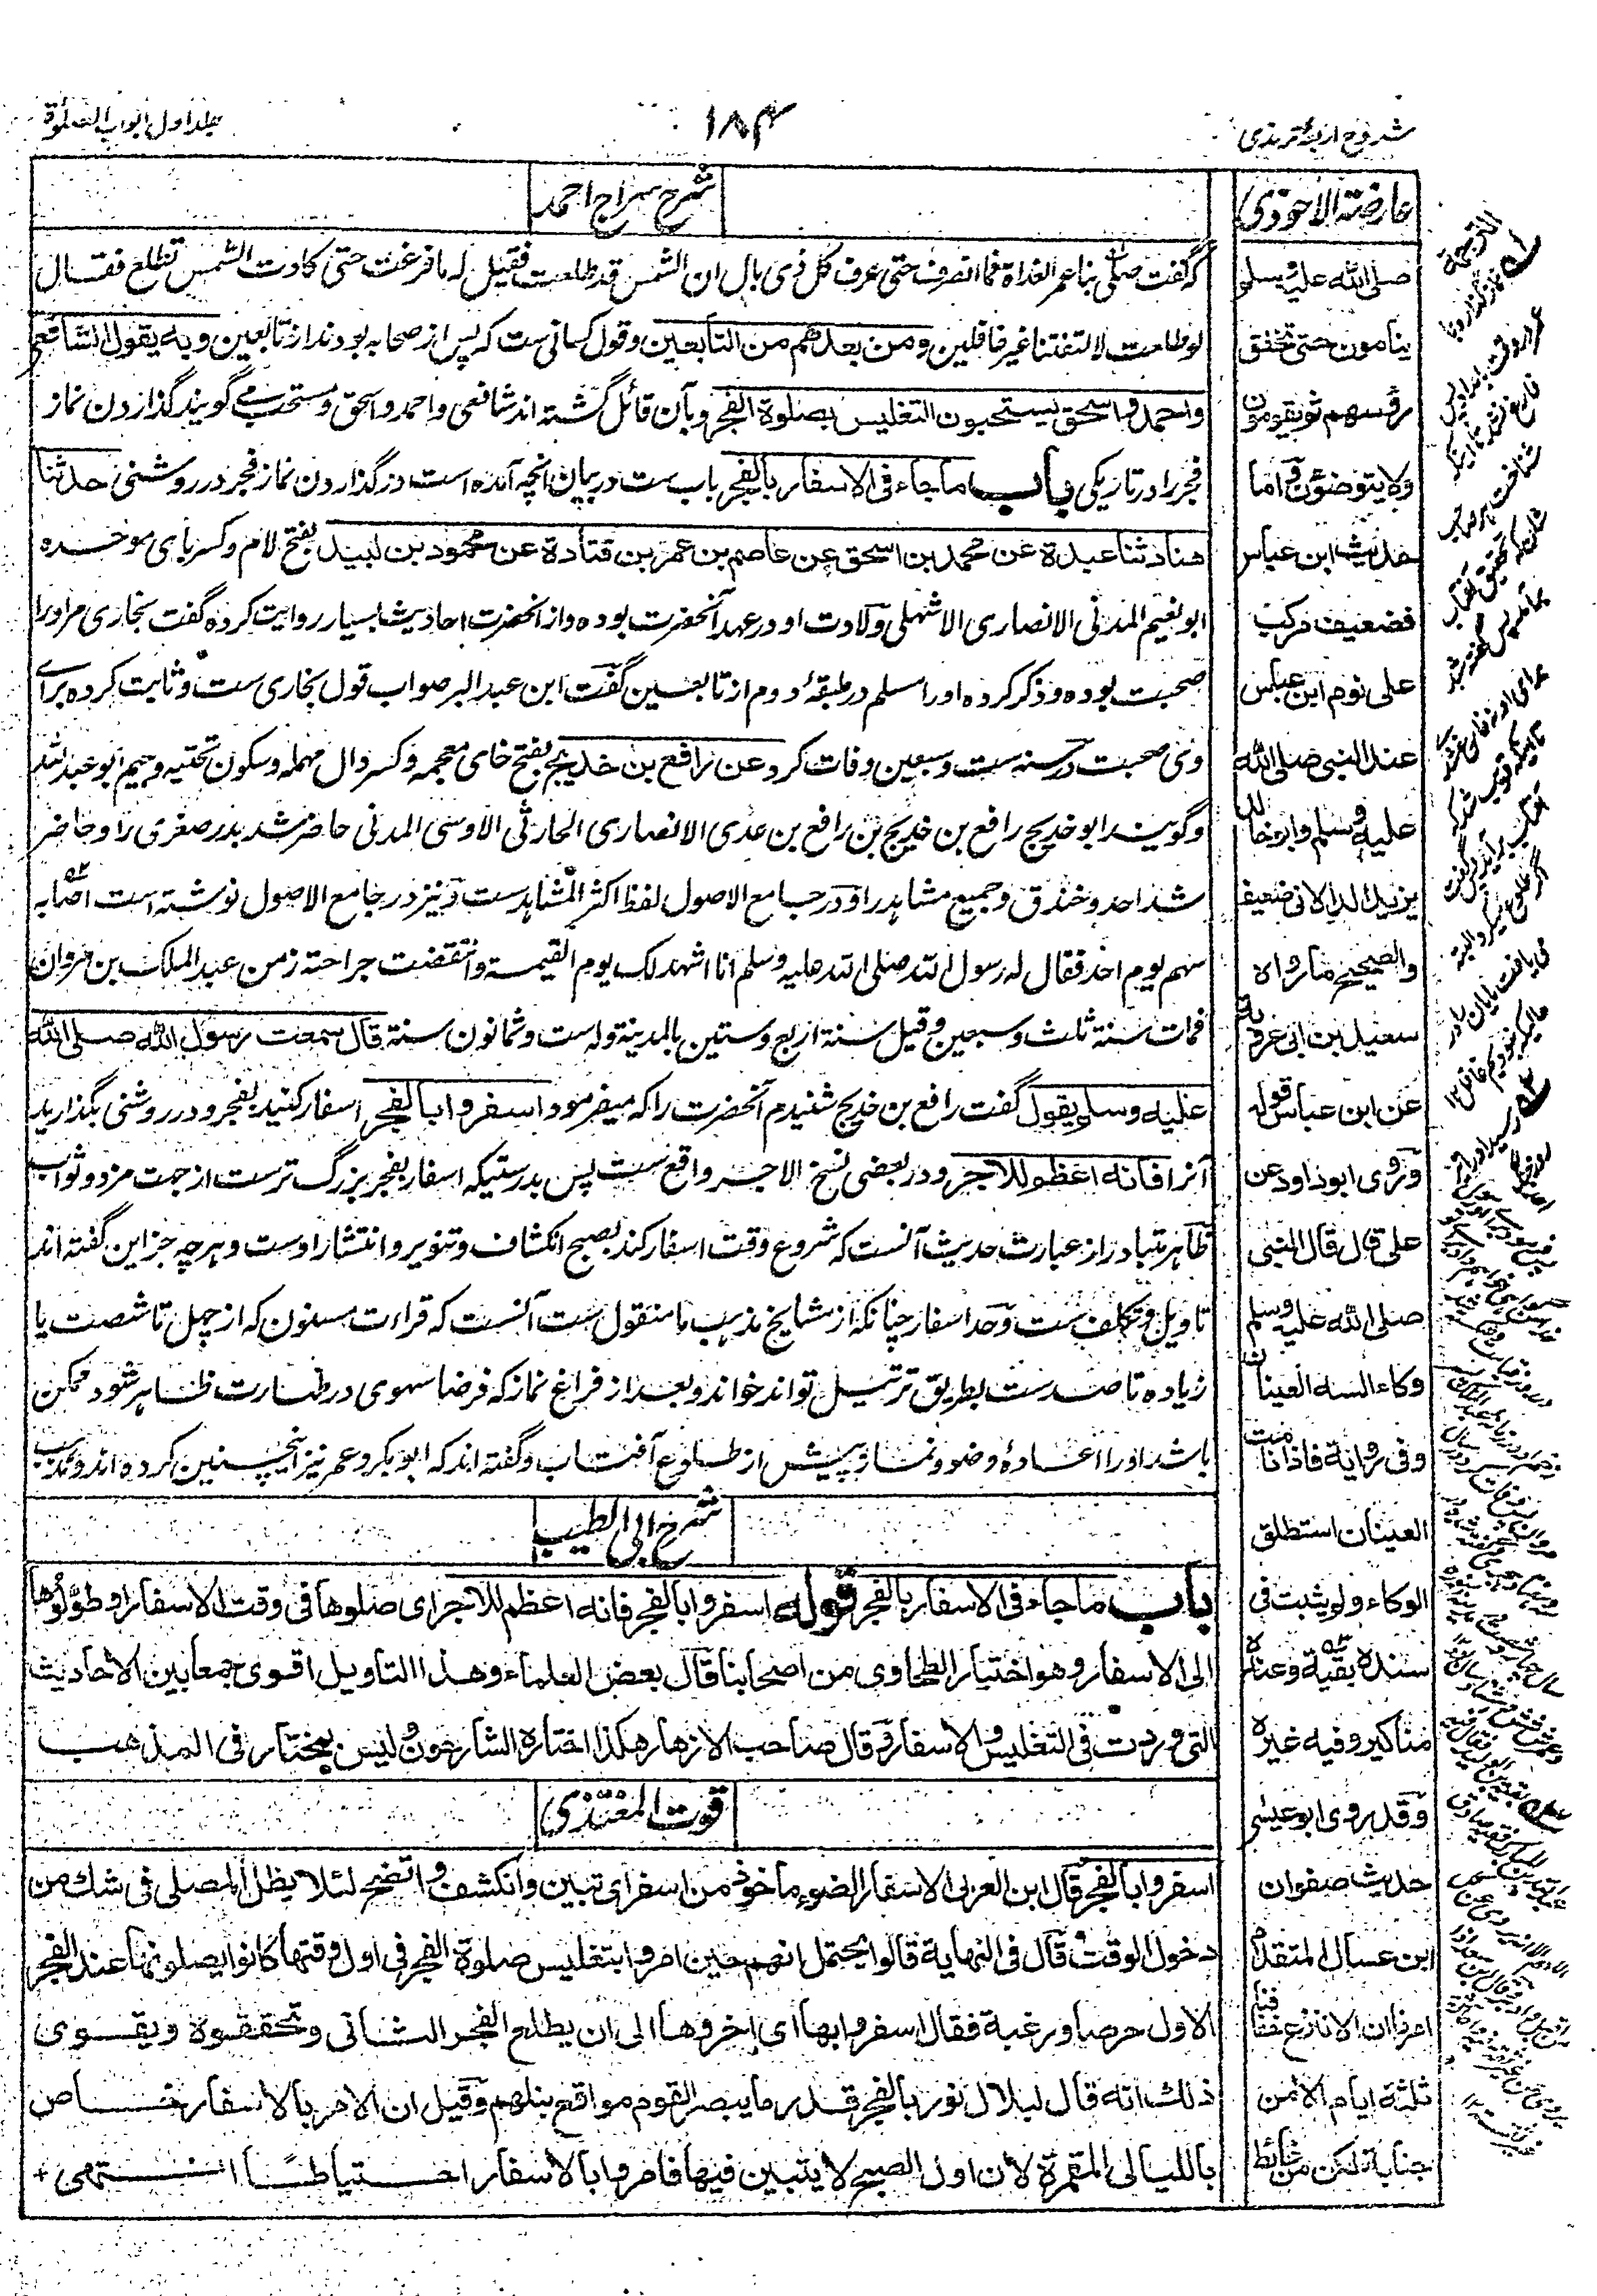 شروح اربعہ ترمذی
۱۸۴
جلد اول ابواب الصلوٰة
شرح سراج احمد
که گفت صلی بنا عمر الغداة فما انصرف حتی عرف کل ذی بال ان الشمس قد طلعت فقیل له ما فرغت حتی کادت الشمس تطلع فقال
لو طلعت لالتفتنا غیر غافلین ومن بعدهم من التابعین وقول کسانی ست که پس از صحابه بودند از تابعین وبه یقول الشافعی
واحمد واسحق یستحبون التغلیس بصلوة الفجر وبآن قائل گشته اند شافعی واحمد واسحق ومستحب می گویند گذاردن نماز
فجر را در تاریکی باب ما جاء فی الاسفار بالفجر باب ست در بیان آنچه آمده است در گذاردن نماز فجر در روشنی حدثنا
هناد ثنا عبدة عن محمد بن اسحق عن عاصم بن عمر بن قتادة عن محمود بن لبید بفتح لام وکسر بای موحده
ابو نعیم المدنی الانصاری الاشهلی ولادت او در عهد آنحضرت بوده واز آنحضرت احادیث بسیار روایت کرده گفت بخاری مر اورا
صحبت بوده وذکر کرده اورا مسلم در طبقۂ دوم از تابعین گفت ابن عبد البر صواب قول بخاری ست وثابت کرده برای
وی صحبت در سنه ست وسبعین وفات کرد عن رافع بن خدیج بفتح خای معجمه وکسر دال مهمله وسکون تحتیه وجیم ابو عبد الله
وگویند ابو خدیج رافع بن خدیج بن رافع بن عدی الانصاری الحارثی الاوسی المدنی حاضر شد بدر صغری را وحاضر
شد احد وخندق وجمیع مشاهد را ودر جامع الاصول لفظ اکثر المشاهد ست ونیز در جامع الاصول نوشته است اصابه
سهم یوم احد فقال له رسول الله صلی الله علیه وسلم انا اشهد لک یوم القیمة وانتقضت جراحته زمن عبد الملک بن مروان
فمات سنة ثلث وسبعین وقیل سنة اربع وستین بالمدینة وله ست وثمانون سنة قال سمعت رسول الله صلی الله
علیه وسلم یقول گفت رافع بن خدیج شنیدم آنحضرت را که میفرمود اسفروا بالفجر اسفار کنید بفجر ودر روشنی بگذارید
آنرا فانه اعظم للاجر ودر بعضی نسخ الاجر واقع ست پس بدرستیکه اسفار بفجر بزرگ ترست از جهت مزد وثواب
ظاهر متبادر از عبارت حدیث آنست که شروع وقت اسفار کند بصبح انکشاف وتنویر وانتشار اوست وهرچه جز این گفته اند
تاویل وتکلف ست وحد اسفار چنانکه از مشایخ مذهب ما منقول ست آنست که قراءت مسنون که از چهل تا شصت یا
زیاده تا صد ست بطریق ترتیل تواند خواند وبعد از فراغ نماز که فرضا سهوی در طهارت ظاهر شود ممکن
باشد اورا اعادۂ وضو ونماز پیش از طلوع آفتاب وگفته اند که ابو بکر وعمر نیز اینچنین کرده اند ومذهب
شرح ابی الطیب
باب ما جاء فی الاسفار بالفجر قوله اسفروا بالفجر فانه اعظم للاجر ای صلوها فی وقت الاسفار او طوّلوها
الی الاسفار وهو اختیار الطحاوی من اصحابنا قال بعض العلماء وهذا التاویل اقوی جمعا بین الاحادیث
التی وردت فی التغلیس والاسفار وقال صاحب الازهار هکذا اختاره الشارحون ولیس بمختار فی المذهب
قوت المغتذی
اسفروا بالفجر قال ابن العربی الاسفار الضوء ماخوذ من اسفر ای تبین وانکشف واتضح لئلا یظل المصلی فی شک من
دخول الوقت قال فی النهایة قالوا یحتمل انهم حین امروا بتغلیس صلوة الفجر فی اول وقتها کانوا یصلونها عند الفجر
الاول حرصا ورغبة فقال اسفروا بها ای اخروها الی ان یطلع الفجر الثانی وتحققوه ویقوی
ذلک انه قال لبلال نور بالفجر قدر ما یبصر القوم مواقع نبلهم وقیل ان الامر بالاسفار خاص
باللیالی المقمرة لان اول الصبح لا یتبین فیها فامروا بالاسفار احتیاطا انتهی +
عارضة الاحوذی
صلی الله علیه وسلم
ینامون حتی تخفق
رؤسهم ثم یقومون
ولا یتوضؤن واما
حدیث ابن عباس
فضعیف مرکب
علی نوم ابن عباس
عند النبی صلی الله
علیه وسلم وابو خالد
یزید الدالانی ضعیف
والصحیح ما رواه
سعید بن ابی عروبة
عن ابن عباس قوله
وروی ابو داود عن
علی قال قال النبی
صلی الله علیه وسلم
وکاء السه العینان
وفی روایة فاذا نامت
العینان استطلق
الوکاء ولم یثبت فی
سنده بقیة وعنده
مناکیر وفیه غیره
وقد روی ابو عیسی
حدیث صفوان
ابن عسال المتقدم
امرنا ان لا ننزع خفافنا
ثلثة ایام الا من
جنابة لکن من غائط